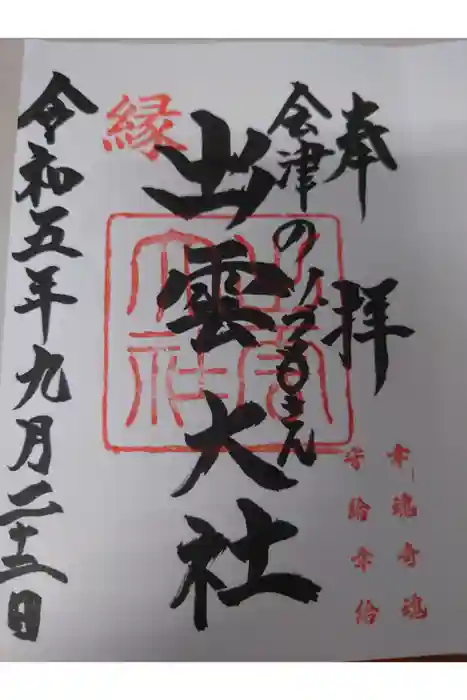 奉拝
会津のイズモさん
幸魂奇魂
守給幸給
縁
出雲大社
出雲大社
令和五年九月二十三日